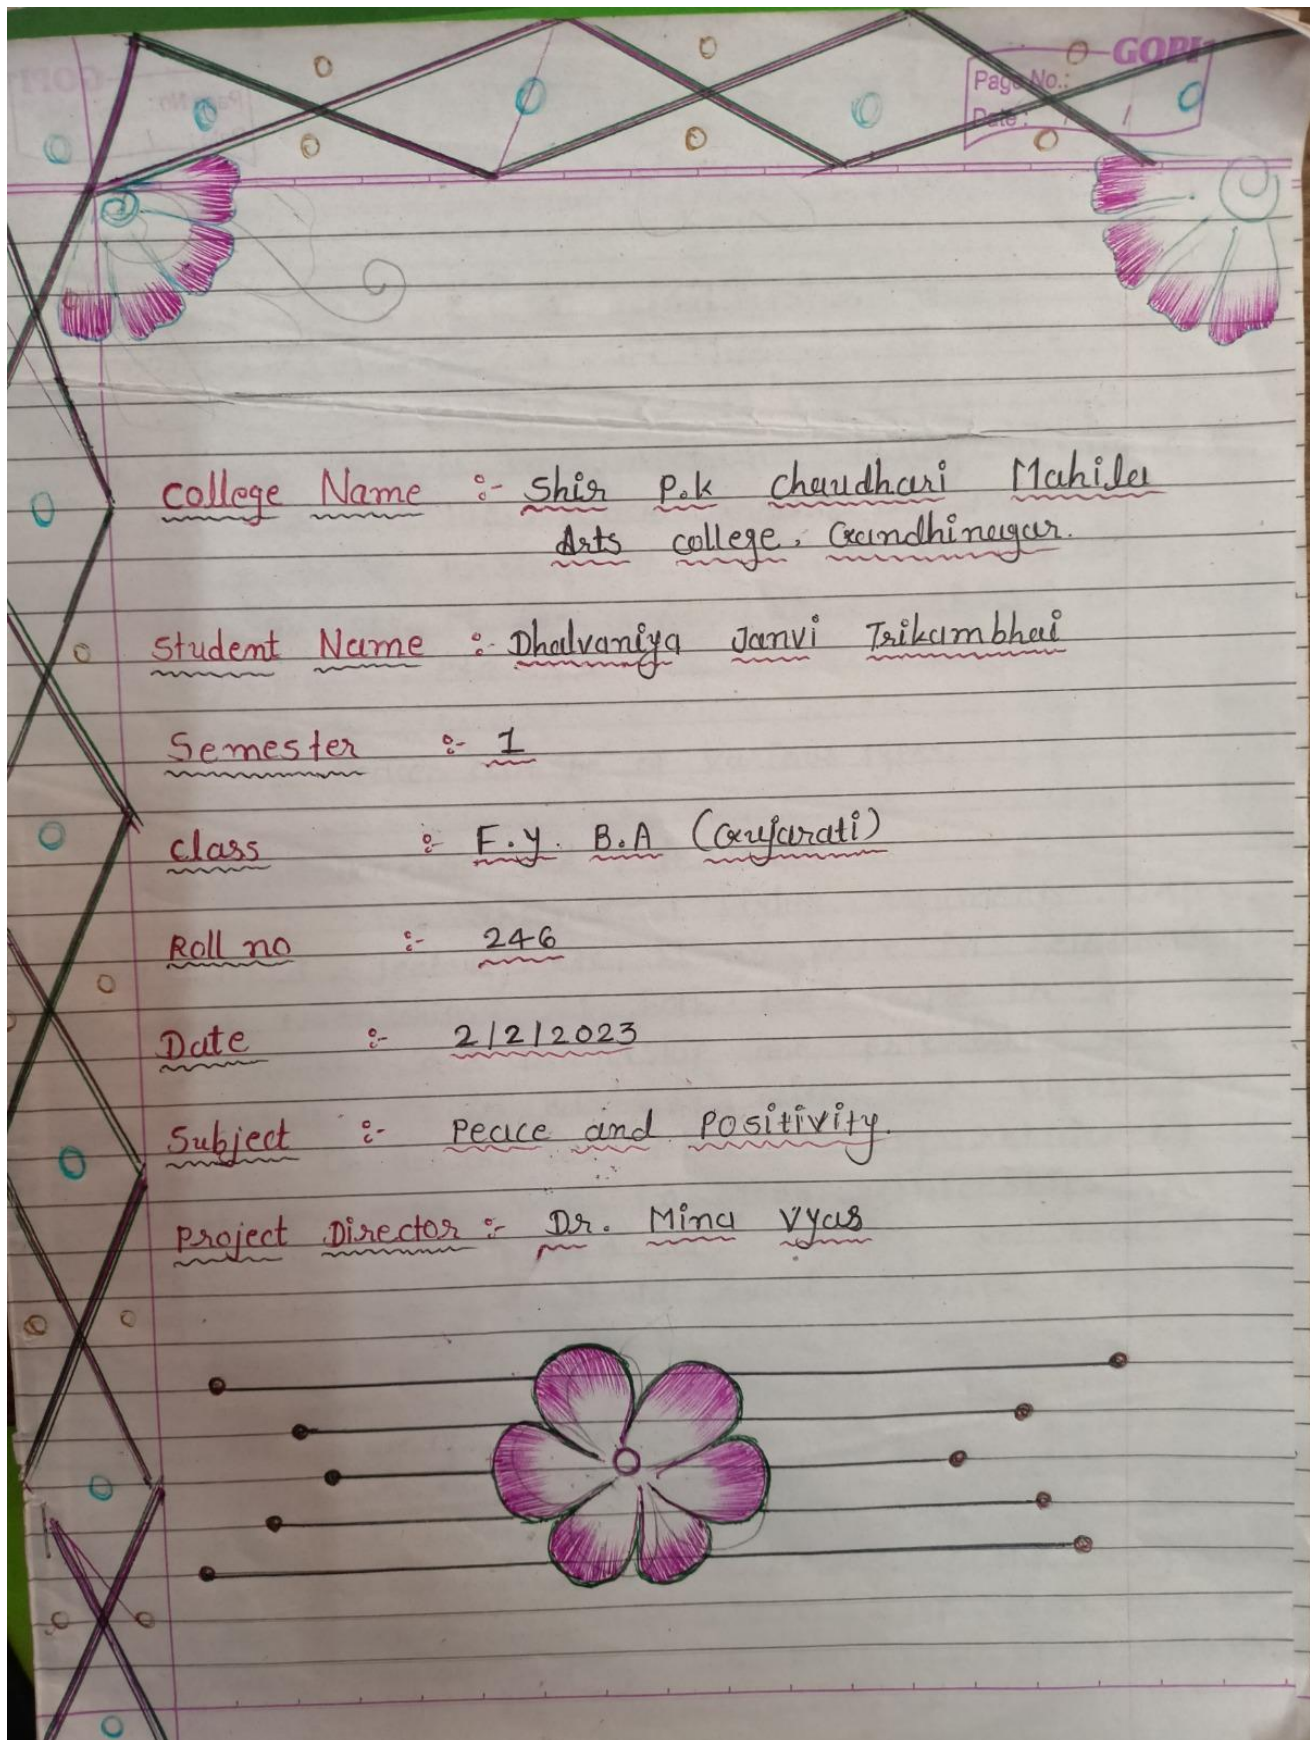 GOPI
Page No.:
Date: / /
College Name :- Shir P.k Chaudhari Mahila
Arts college, Gandhinagar.
Student Name :- Dhalvaniya Janvi Trikambhai
Semester :- 1
Class :- F.Y. B.A (Gujarati)
Roll no :- 246
Date :- 2/2/2023
Subject :- Peace and Positivity.
Project Director :- Dr. Mina Vyas